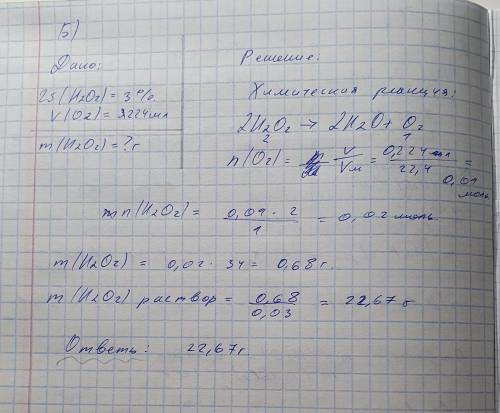 Б)
Дано:
ω(H₂O₂) = 3%
V(O₂) = 224мл
m(H₂O₂) = ? г
Решение:
Химическая реакция:
2H₂O₂ → 2H₂O + O₂
2 1
n(O₂) = V/Vм = 0,224 / 22,4 = 0,01 моль
n(H₂O₂) = 0,01 · 2 / 1 = 0,02 моль.
m(H₂O₂) = 0,02 · 34 = 0,68 г.
m(H₂O₂) раствор = 0,68 / 0,03 = 22,67 г
Ответь: 22,67г